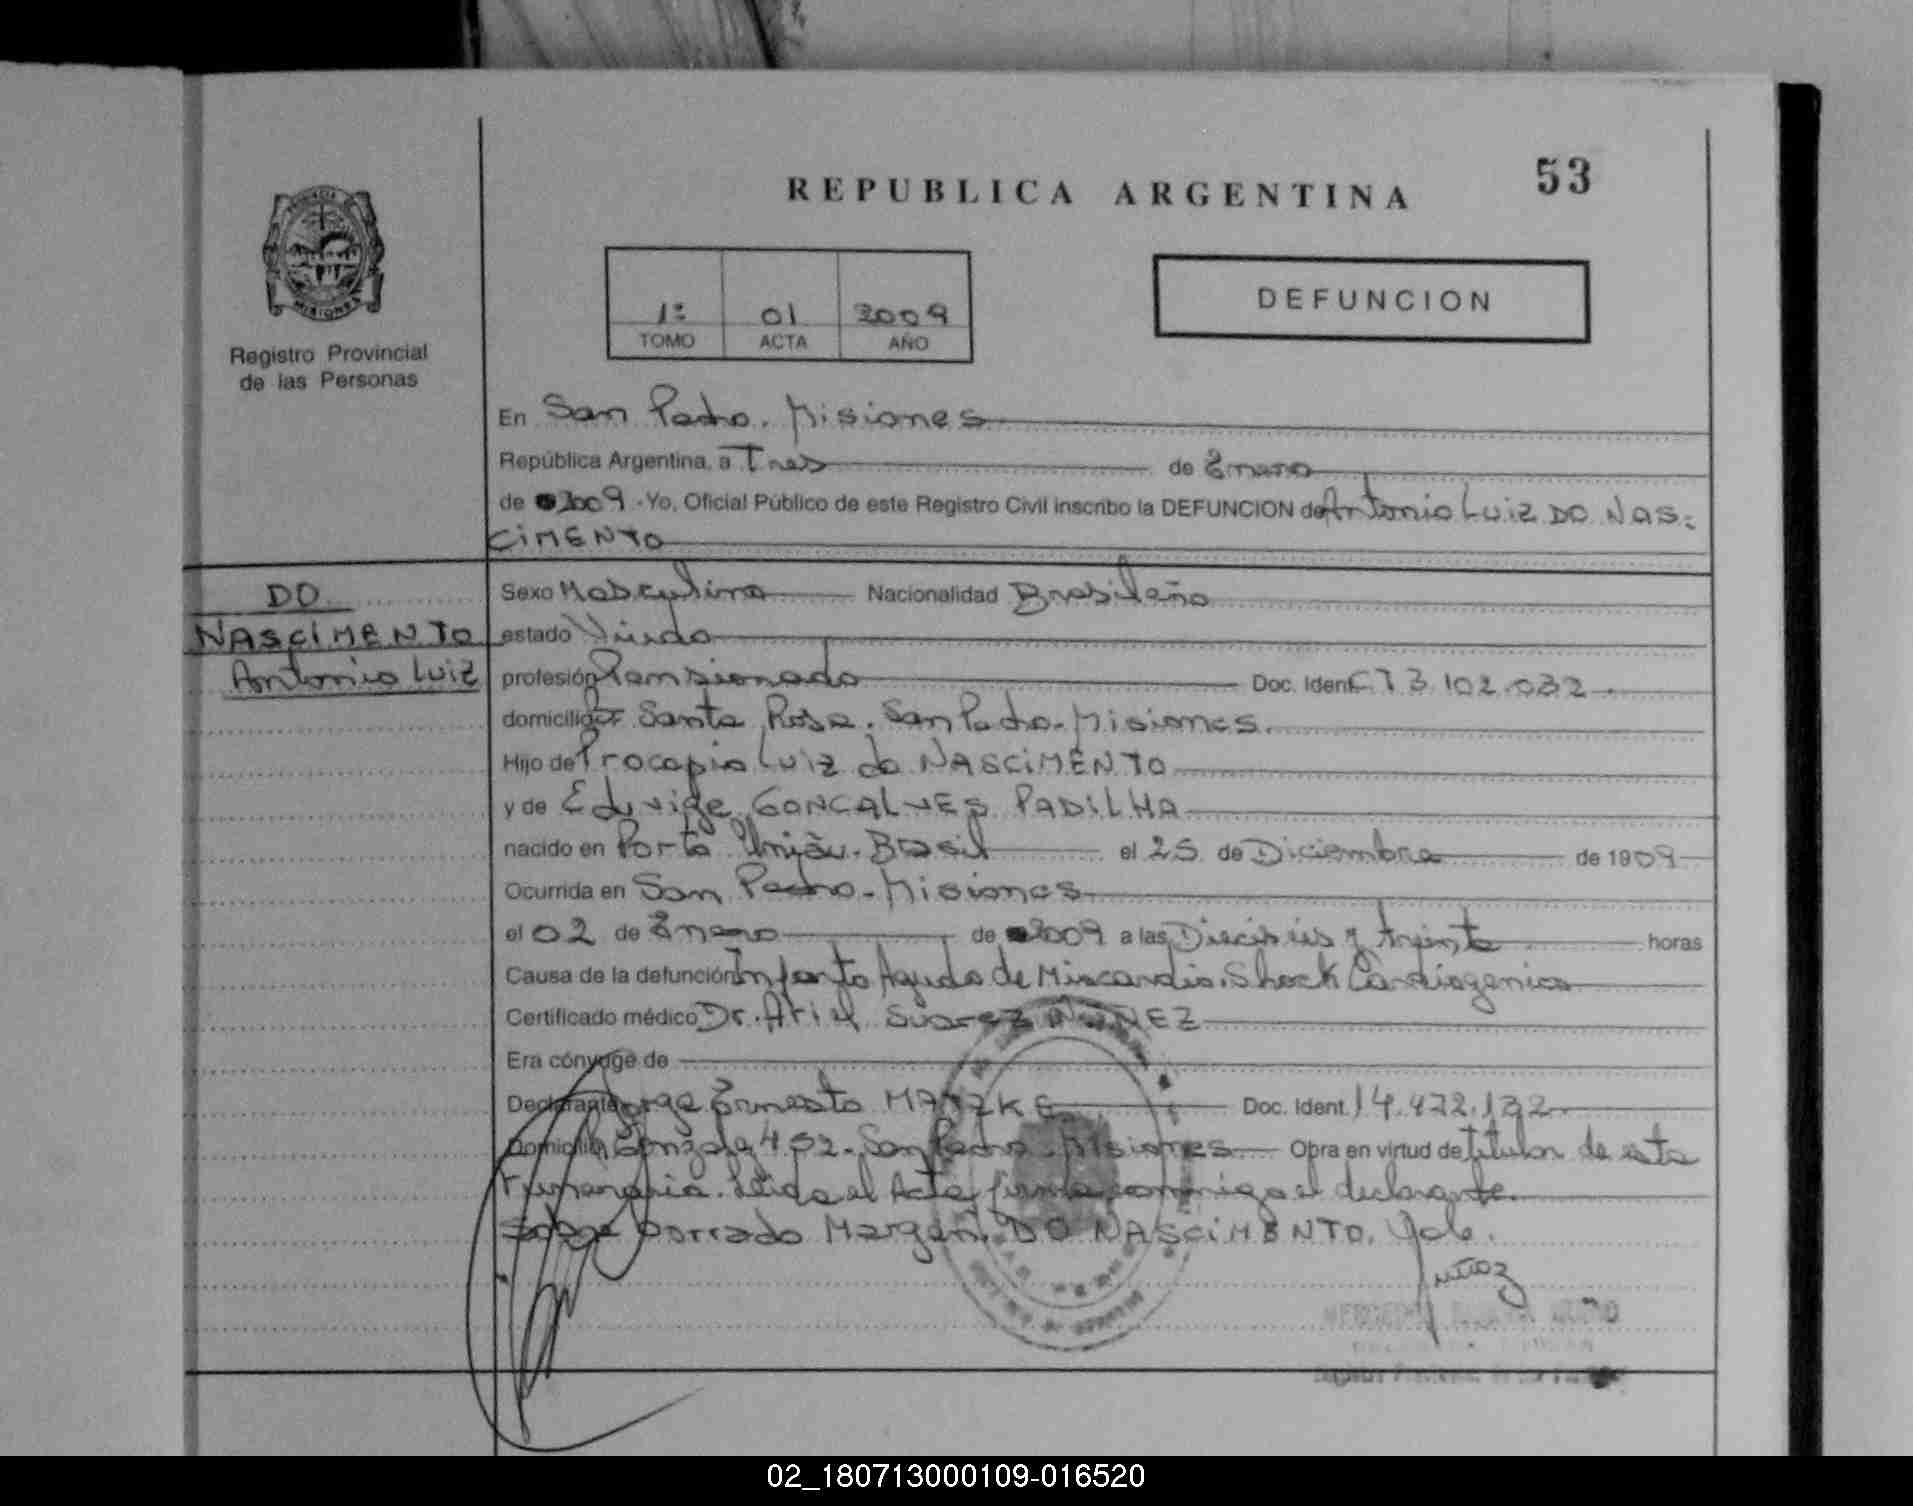 53
REPUBLICA ARGENTINA
PROVINCIA DE
MISIONES
Registro Provincial
de las Personas
1º 01 2009
TOMO ACTA AÑO
DEFUNCION
En San Pedro. Misiones
República Argentina, a Tres de Enero
de 2009 - Yo, Oficial Público de este Registro Civil inscribo la DEFUNCION de Antonio Luiz DO NAS-
CIMENTO
DO
NASCIMENTO
Antonio Luiz
Sexo Masculino Nacionalidad Brasileño
estado Viudo
profesión Pensionado Doc. Ident. CI 3.102.032.
domicilio Santa Rosa. San Pedro-Misiones.
Hijo de Procopio Luiz do NASCIMENTO
y de Eduvige GONCALVES PADILHA
nacido en Porto União. Brasil el 25 de Diciembre de 1909
Ocurrida en San Pedro-Misiones
el 02 de Enero de 2009 a las Dieciseis y treinta horas
Causa de la defunción Infarto Agudo de Miocardio. Shock Cardiogenico
Certificado médico Dr. Ariel Suarez NUÑEZ
Era cónyuge de
Declarante Jorge Ernesto MATZKE Doc. Ident. 14.472.132
Domicilio Gonzalez 452. San Pedro Misiones Obra en virtud de titular de esta
Funeraria. Leida el Acta firma conmigo el declarante.
Sobre borrado Margen. DO NASCIMENTO. Vale.
02_180713000109-016520